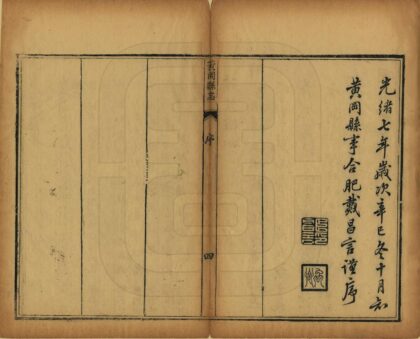 光緒七年歲次辛巳冬十月知
黃岡縣事合肥戴昌言謹序
黃岡縣志
序
四